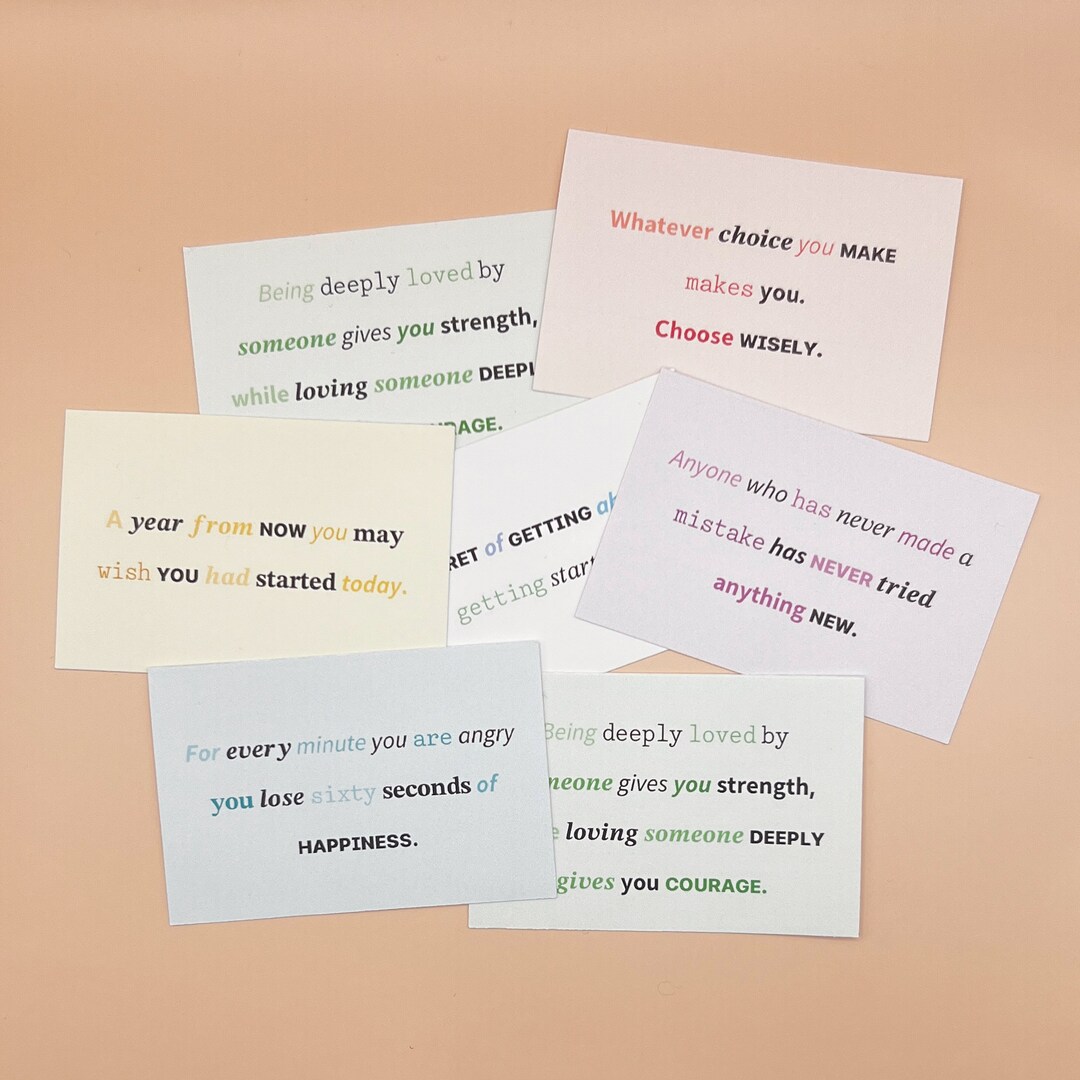 Being deeply loved by
someone gives you strength,
while loving someone
Whatever choice you MAKE
makes you.
Choose WISELY.
A year from NOW you may
wish YOU had started today.
of GETTING
getting
Anyone who has never made a
mistake has NEVER tried
anything NEW.
For every minute you are angry
you lose sixty seconds of
HAPPINESS.
Being deeply loved by
gives you strength,
loving someone DEEPLY
gives you COURAGE.